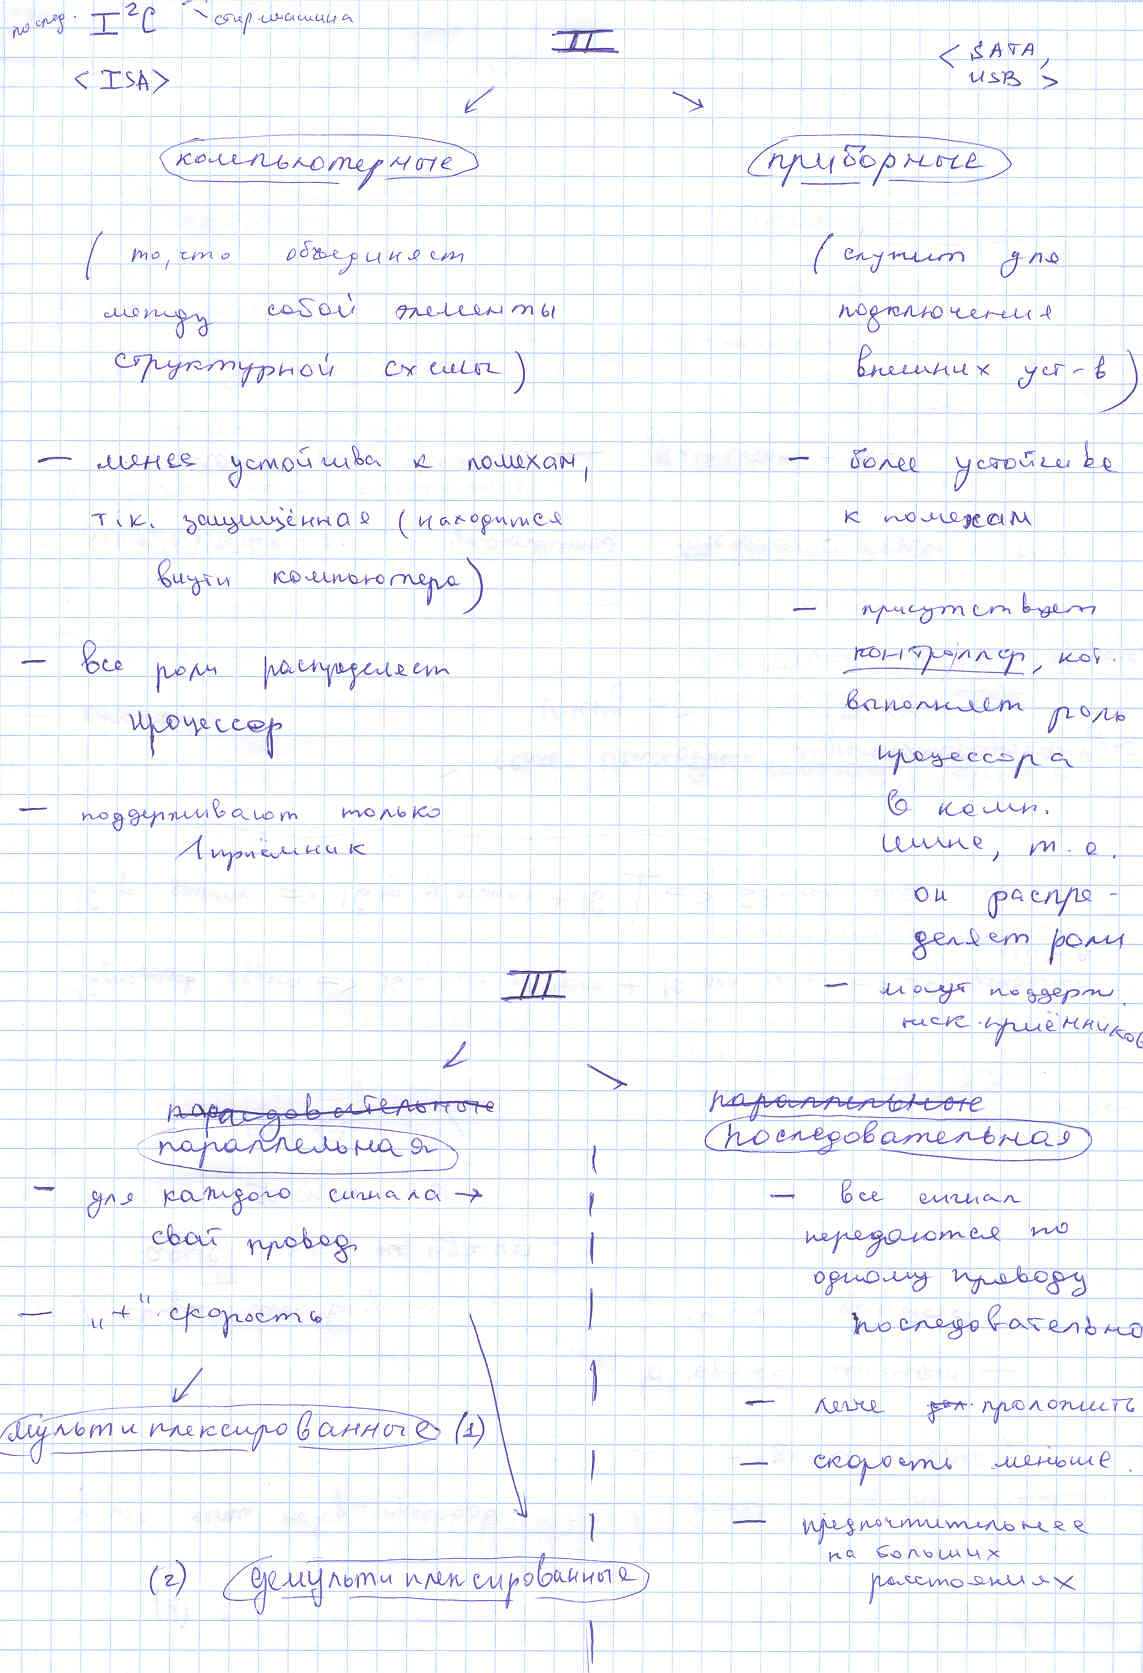 послед. I²C стир.машина
II
< SATA,
USB >
<ISA>
компьютерные
приборные
(то, что объединяет
между собой элементы
структурной схемы)
(служит для
подключения
внешних уст-в)
— менее устойчива к помехам,
т.к. защищённая (находится
внути компьютера)
— все роли распределяет
процессор
— поддерживают только
1 приёмник
— более устойчивее
к помехам
— присутствует
контроллер, кот.
выполняет роль
процессора
в комп.
шине, т.е.
он распре-
деляет роли
— могут поддерж.
неск. приёмников
III
последовательные
параллельная
— для каждого сигнала →
свой провод
— „+“ скорость
мультиплексированные (1)
(2) демультиплексированные
параллельные
последовательная
— все сигнал
передаются по
одному проводу
последовательно
— легче проложить
— скорость меньше.
— предпочтительнее
на больших
расстояниях